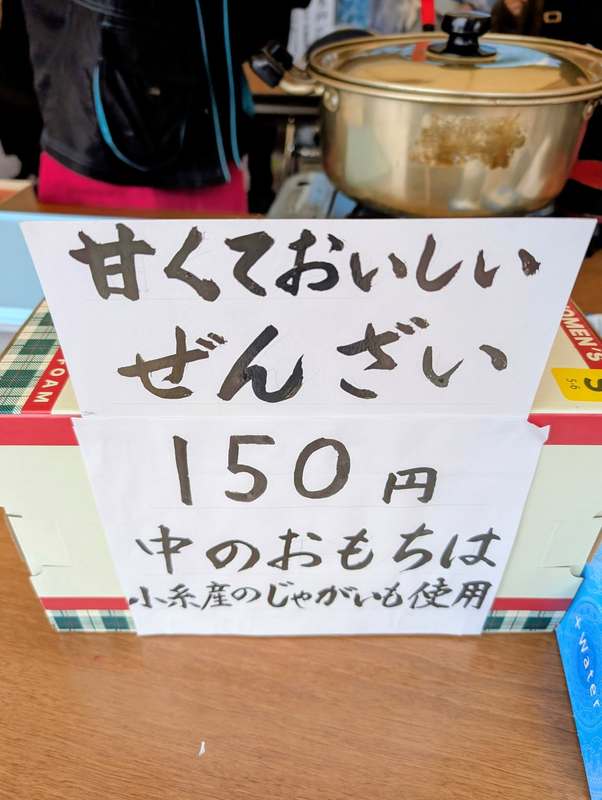 甘くておいしい
ぜんざい
150円
中のおもちは
小糸産のじゃがいも使用
FOAM
WOMEN'S
5-6
water